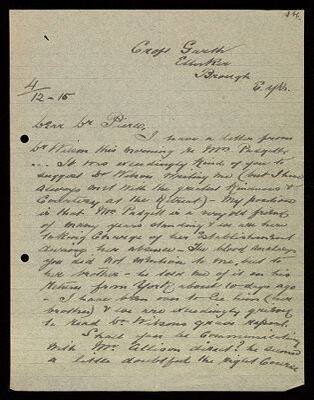 Croft Garth
Ellerker
Brough
E. Yks.
4/12-15
Dear Dr Pierce,
I have a letter from
Dr Wilson this morning re Mrs Padgett
... It was exceedingly kind of you to
suggest Dr Wilson writing me (but I have
always met with the greatest kindness &
courtesy at the Retreat) - My position
is that Mrs Padgett is a very old friend
of many years standing & we are here
taking charge of her Establishment
during her absence. The blood
you did not mention to me, but to
her brother - he told me of it on his
return from York about 10 days ago
- I have been over to see him (her
brother) & we are exceedingly grieved
to read Dr Wilsons grave report.
Shall you be communicating
with Mrs Ellison direct? he seemed
a little doubtful the right course